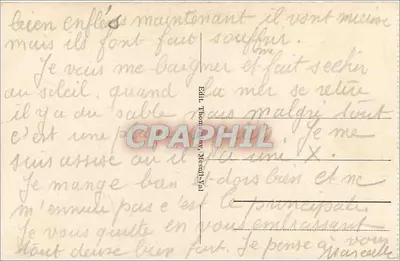 bien enflés maintenant il vont mieux
mais ils font fait souffrir.
Je vais me baigner et fait sécher
au soleil, quand la mer se retire
il y a du sable mais malgré tout
c'est une Je me
suis assise ou il y a une X.
Je mange bien et dors bien et ne
m'ennui pas c'est le principale
Je vous quitte en vous embrassant
tout deux bien fort. Je pense a vous
Marcelle
Edit. Mesnil-Val
CPAPHIL